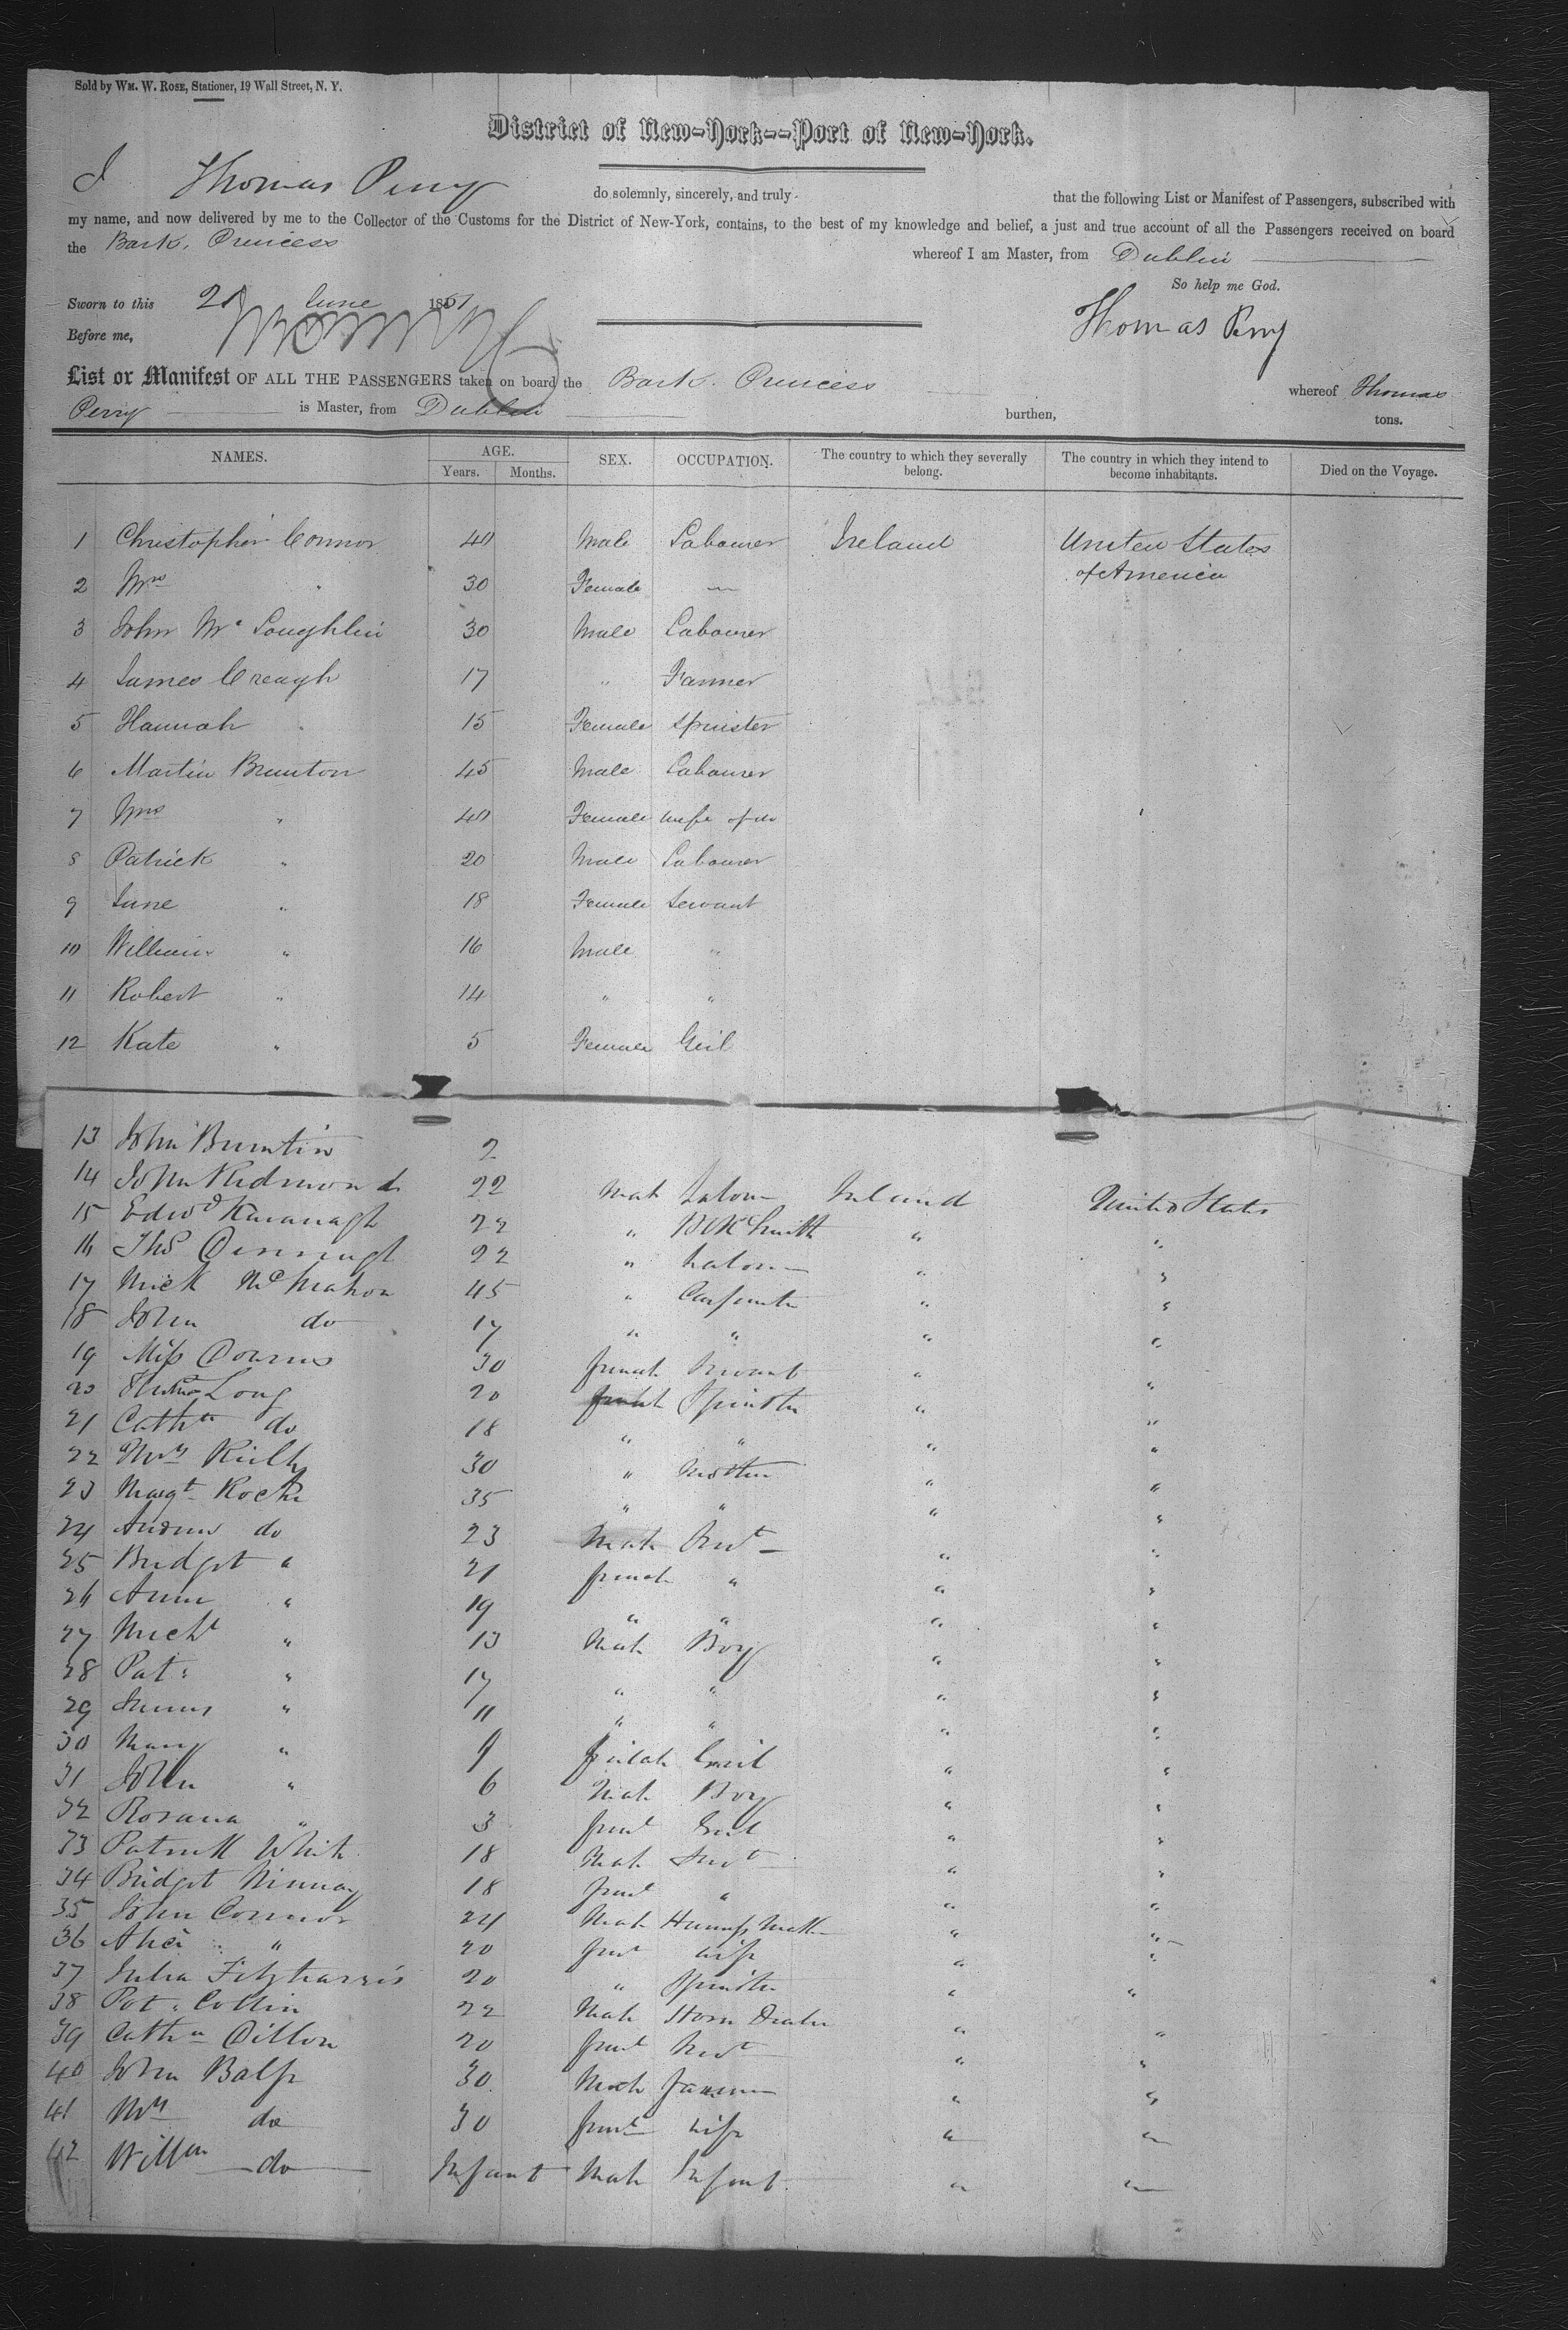 Sold by WM. W. ROSE, Stationer, 19 Wall Street, N. Y.
District of New-York--Port of New-York.
I Thomas Perry do solemnly, sincerely, and truly that the following List or Manifest of Passengers, subscribed with
my name, and now delivered by me to the Collector of the Customs for the District of New-York, contains, to the best of my knowledge and belief, a just and true account of all the Passengers received on board
the Bark. Princess whereof I am Master, from Dublin
So help me God.
Sworn to this 21 June 1851
Thomas Perry
Before me,
List or Manifest OF ALL THE PASSENGERS taken on board the Bark. Princess whereof Thomas
Perry is Master, from Dublin burthen, tons.
NAMES. AGE. Years. Months. SEX. OCCUPATION. The country to which they severally belong. The country in which they intend to become inhabitants. Died on the Voyage.
1 Christopher Connor 40 Male Labourer Ireland United States
of America
2 Mrs " 30 Female —
3 John Mc Loughlin 30 Male Labourer
4 James Creagh 17 " Farmer
5 Hannah " 15 Female Spinster
6 Martin Brunton 45 Male Labourer
7 Mrs " 40 Female wife of do
8 Patrick " 20 Male Labourer
9 Jane " 18 Female Servant
10 William " 16 Male "
11 Robert " 14 " "
12 Kate " 5 Female Girl
13 John Bruntin 2
14 John Redmond 22 Male Labour Ireland United States
15 Edwd Kavanagh 22 " Blk Smith " "
16 Ths 22 " Labour " "
17 Mick Mc Mahon 45 " Carpenter " "
18 John do 17 " " " "
19 Miss Downs 30 female Servant " "
20 Long 20 female Spinster " "
21 Cathn do 18 " " " "
22 Mrs 30 " Mother " "
23 Margt Roche 35 " " " "
24 Andrew do 23 Male Servt " "
25 Bridget " 21 female " " "
26 Anne " 19 " " " "
27 Michl " 13 Male Boy " "
28 Pat: " 17 " " " "
29 James " 11 " " " "
30 Mary " 9 female Girl " "
31 John " 6 Male Boy " "
32 Rosana " 3 feml Girl " "
33 Patrick White 18 Male Servt " "
34 Bridget 18 feml " " "
35 John Connor 24 Male Harness Maker " "
36 Alice " 20 feml wife " "
37 Julia Fitzharris 20 " Spinster " "
38 Pat: Collin 22 Male Dealer " "
39 Cathn Dillon 20 feml Servt " "
40 John Balfe 30 Male farmer " "
41 Mrs do 30 feml wife " "
42 Willm do Infant Male Infant " "